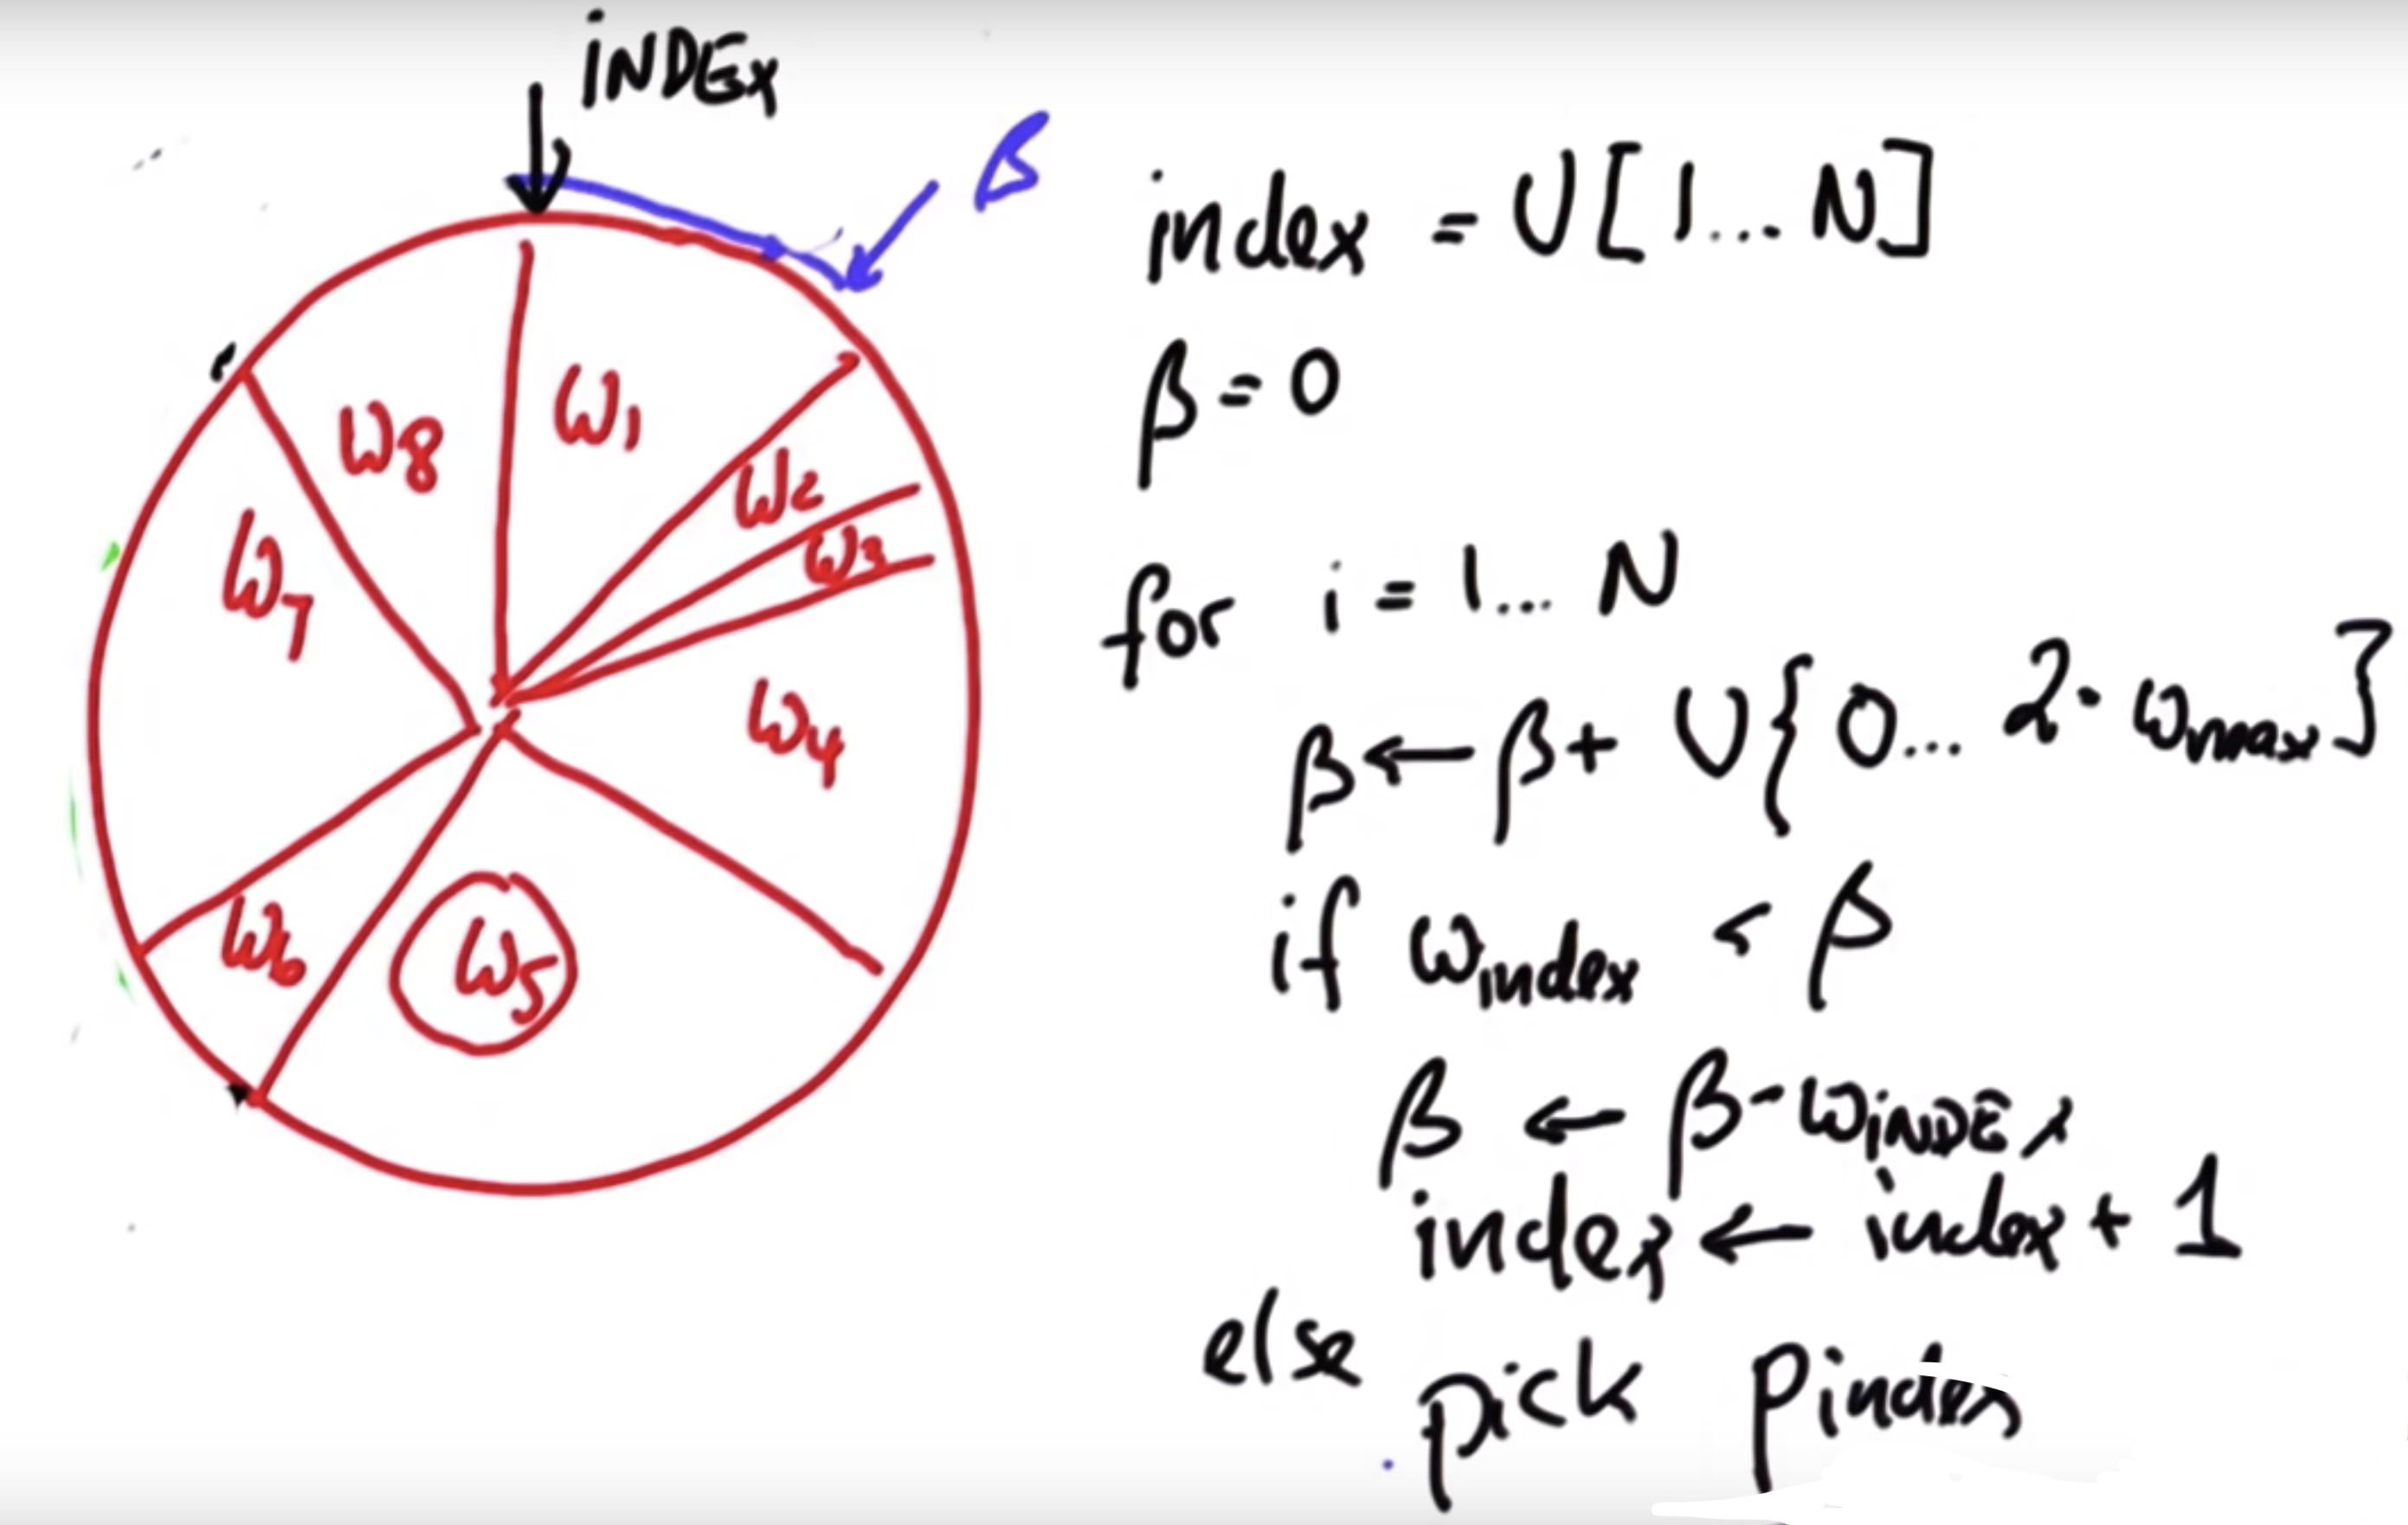 iNDEx
β
ω1
ω2
ω3
ω4
ω5
ω6
ω7
ω8
index = U[1...N]
β = 0
for i = 1... N
β ← β + U{0... 2·ωmax}
if ωindex < β
β ← β - ωiNDEx
index ← index + 1
else pick Pindex